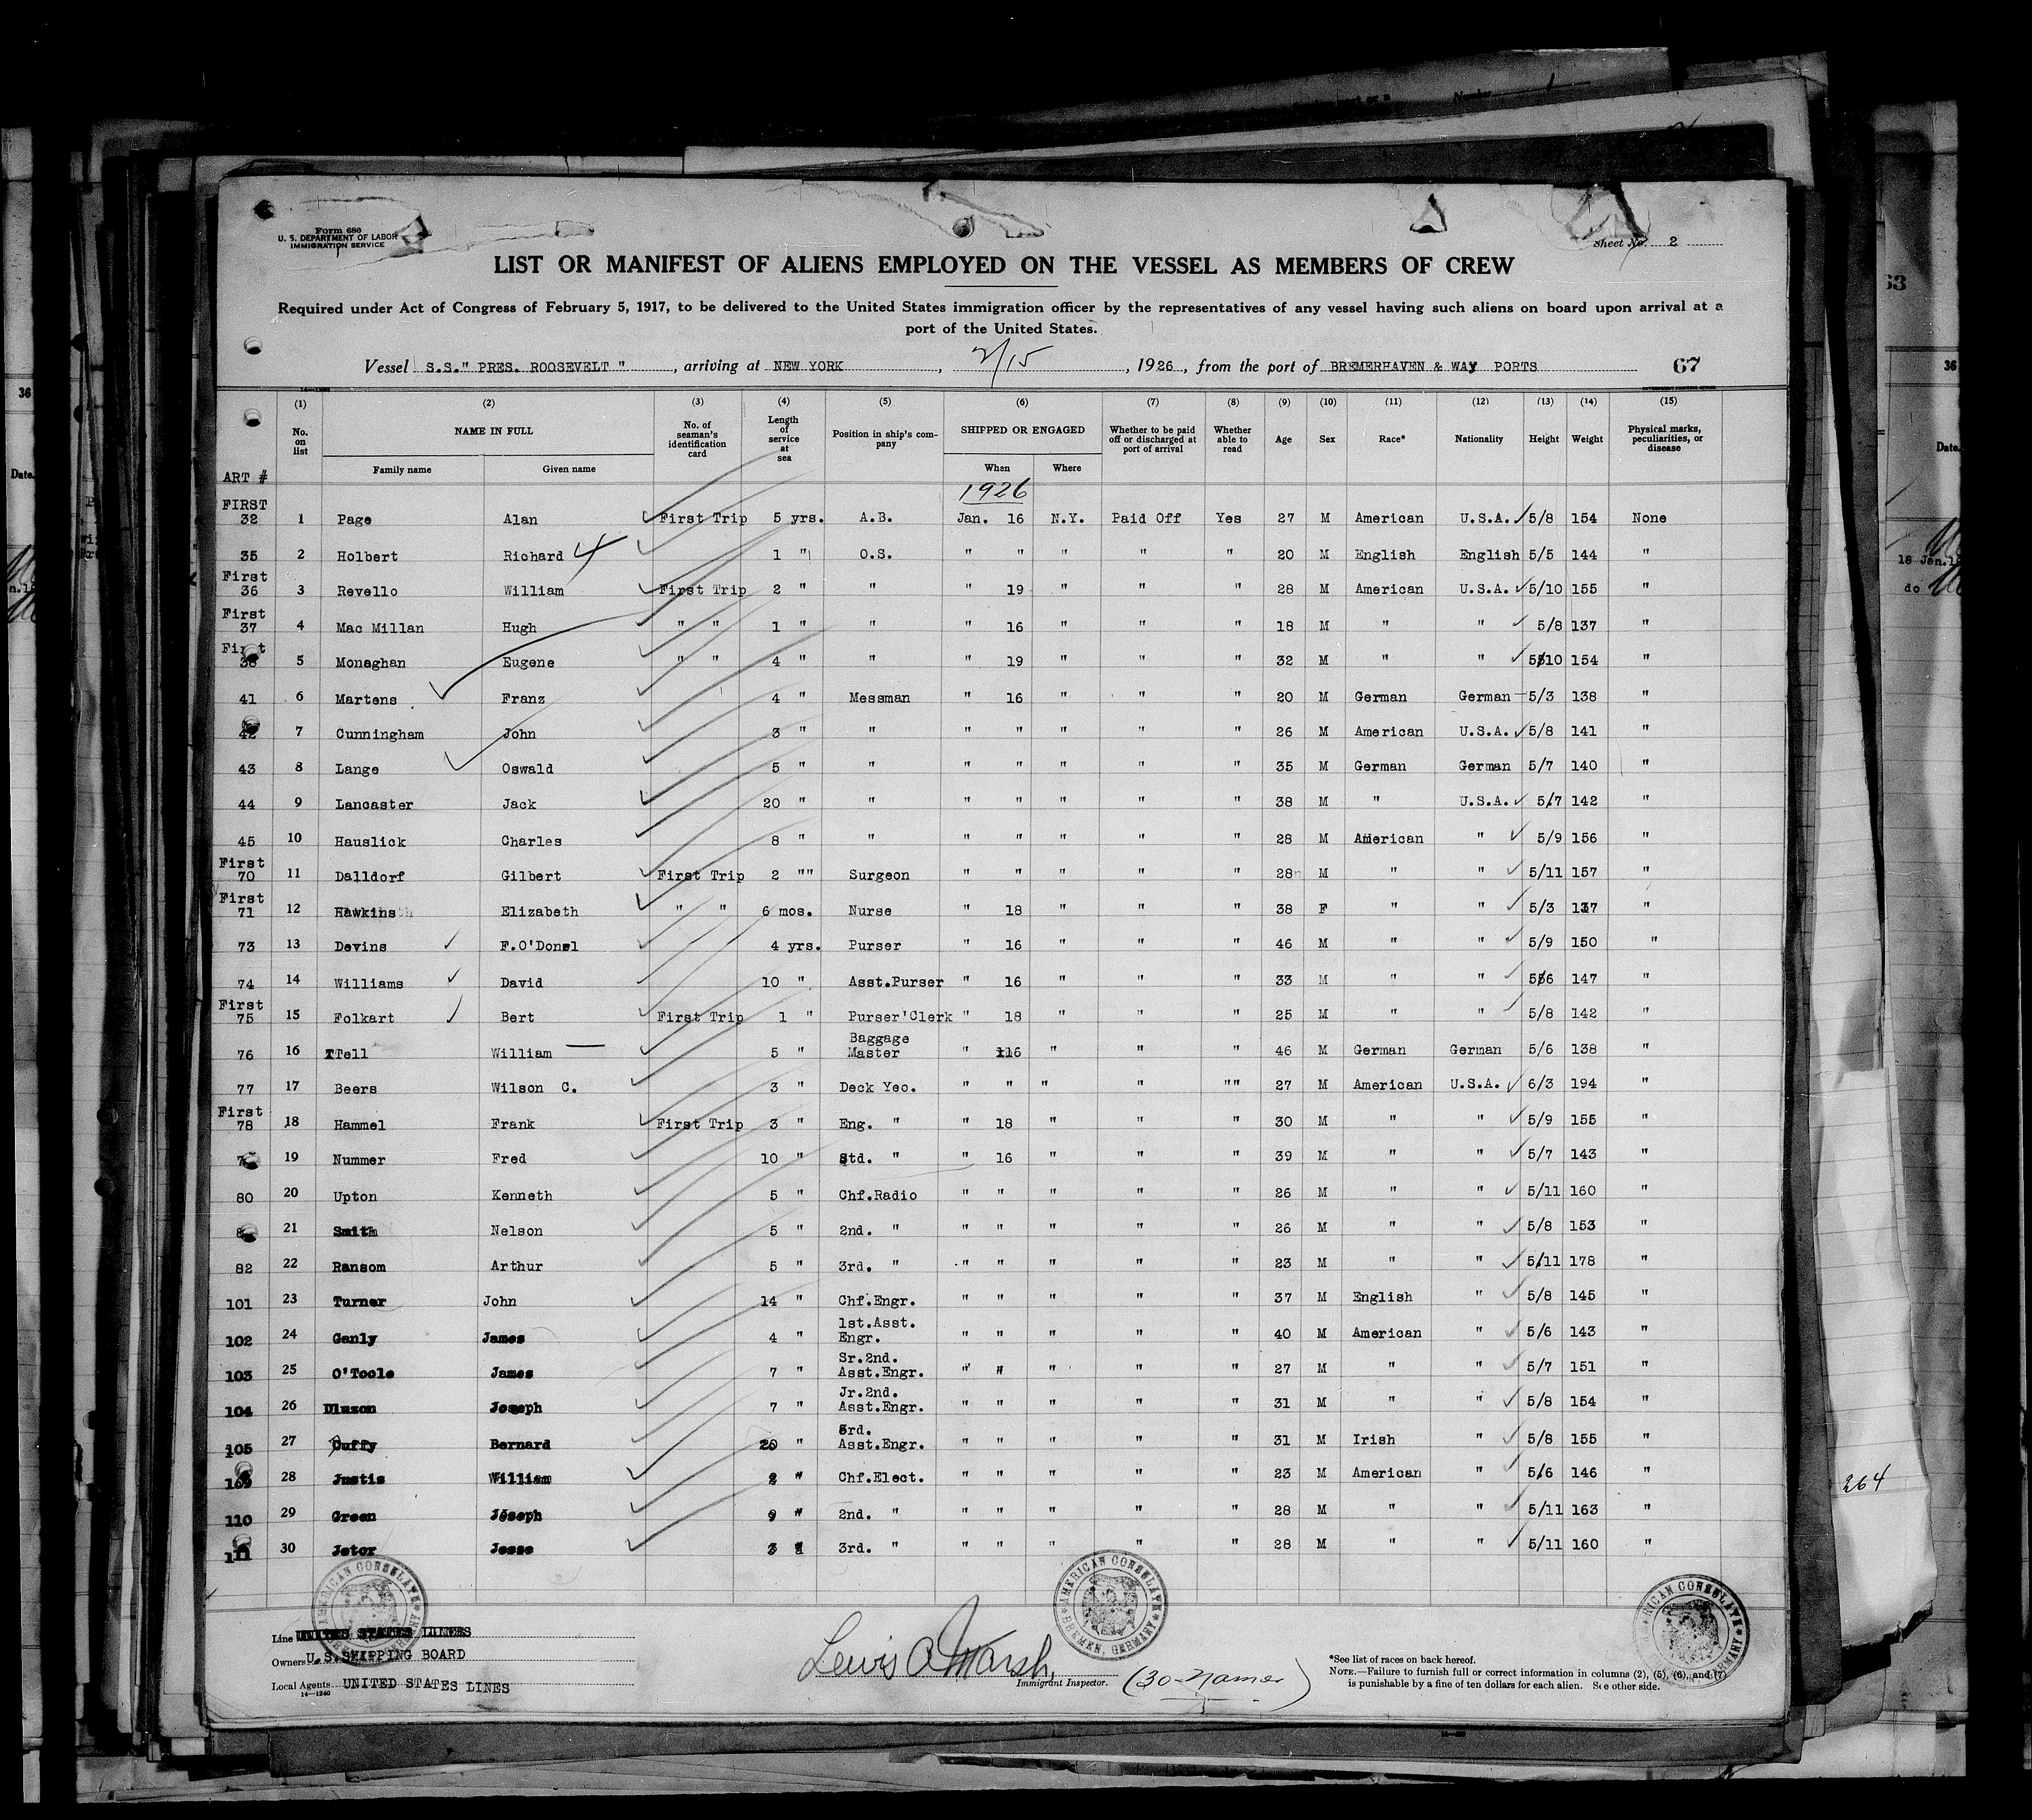 Form 680
U. S. DEPARTMENT OF LABOR
IMMIGRATION SERVICE
Sheet No. 2
LIST OR MANIFEST OF ALIENS EMPLOYED ON THE VESSEL AS MEMBERS OF CREW
Required under Act of Congress of February 5, 1917, to be delivered to the United States immigration officer by the representatives of any vessel having such aliens on board upon arrival at a
port of the United States.
Vessel S.S." PRES. ROOSEVELT ", arriving at NEW YORK, 2/15, 1926, from the port of BREMERHAVEN & WAY PORTS 67
14—1240
(1) (2) (3) (4) (5) (6) (7) (8) (9) (10) (11) (12) (13) (14) (15)
No. on list NAME IN FULL No. of seaman's identification card Length of service at sea Position in ship's company SHIPPED OR ENGAGED Whether to be paid off or discharged at port of arrival Whether able to read Age Sex Race* Nationality Height Weight Physical marks, peculiarities, or disease
ART # Family name Given name When Where
1926
FIRST
32 1 Page Alan First Trip 5 yrs. A.B. Jan. 16 N.Y. Paid Off Yes 27 M American U.S.A. 5/8 154 None
35 2 Holbert Richard 1 " O.S. " " " " " 20 M English English 5/5 144 "
First
36 3 Revello William First Trip 2 " " " 19 " " " 28 M American U.S.A. 5/10 155 "
First
37 4 Mac Millan Hugh " " 1 " " " 16 " " " 18 M " " 5/8 137 "
First
38 5 Monaghan Eugene " " 4 " " " 19 " " " 32 M " " 5/10 154 "
41 6 Martens Franz 4 " Messman " 16 " " " 20 M German German 5/3 138 "
42 7 Cunningham John 3 " " " " " " " 26 M American U.S.A. 5/8 141 "
43 8 Lange Oswald 5 " " " " " " " 35 M German German 5/7 140 "
44 9 Lancaster Jack 20 " " " " " " " 38 M " U.S.A. 5/7 142 "
45 10 Hauslick Charles 8 " " " " " " " 28 M American " 5/9 156 "
First
70 11 Dalldorf Gilbert First Trip 2 "" Surgeon " " " " " 28 M " " 5/11 157 "
First
71 12 Hawkins Elizabeth " " 6 mos. Nurse " 18 " " " 38 F " " 5/3 137 "
73 13 Devins F.O'Donel 4 yrs. Purser " 16 " " " 46 M " " 5/9 150 "
74 14 Williams David 10 " Asst.Purser " 16 " " " 33 M " " 5/6 147 "
First
75 15 Folkart Bert First Trip 1 " Purser'Clerk " 18 " " " 25 M " " 5/8 142 "
Baggage
76 16 Tell William 5 " Master " 16 " " " 46 M German German 5/6 138 "
77 17 Beers Wilson C. 3 " Deck Yeo. " " " " "" 27 M American U.S.A. 6/3 194 "
First
78 18 Hammel Frank First Trip 3 " Eng. " " 18 " " " 30 M " " 5/9 155 "
19 Nummer Fred 10 " Std. " " 16 " " " 39 M " " 5/7 143 "
80 20 Upton Kenneth 5 " Chf.Radio " " " " " 26 M " " 5/11 160 "
21 Smith Nelson 5 " 2nd. " " " " " " 26 M " " 5/8 153 "
82 22 Ransom Arthur 5 " 3rd. " " " " " " 23 M " " 5/11 178 "
101 23 Turner John 14 " Chf.Engr. " " " " " 37 M English " 5/8 145 "
1st.Asst.
102 24 Ganly James 4 " Engr. " " " " " 40 M American " 5/6 143 "
Sr.2nd.
103 25 O'Toole James 7 " Asst.Engr. " " " " " 27 M " " 5/7 151 "
Jr.2nd.
104 26 Dluzon Joseph 7 " Asst.Engr. " " " " " 31 M " " 5/8 154 "
3rd.
105 27 Cuffy Bernard 20 " Asst.Engr. " " " " " 31 M Irish " 5/8 155 "
109 28 Justis William 2 " Chf.Elect. " " " " " 23 M American " 5/6 146 "
110 29 Green Joseph 9 " 2nd. " " " " " " 28 M " " 5/11 163 "
111 30 Jeter Jesse 3 " 3rd. " " " " " " 28 M " " 5/11 160 "
AMERICAN CONSULATE
BREMEN, GERMANY
Line UNITED STATES LINES
Owners U.S.SHIPPING BOARD
Local Agents UNITED STATES LINES
14—1240
Lewis A. Marsh,
Immigrant Inspector.
(30-Names)
*See list of races on back hereof.
NOTE.—Failure to furnish full or correct information in columns (2), (5), (6), and (7)
is punishable by a fine of ten dollars for each alien. See other side.
264
36
Date.
63
36
Date.
18 Jan.
do